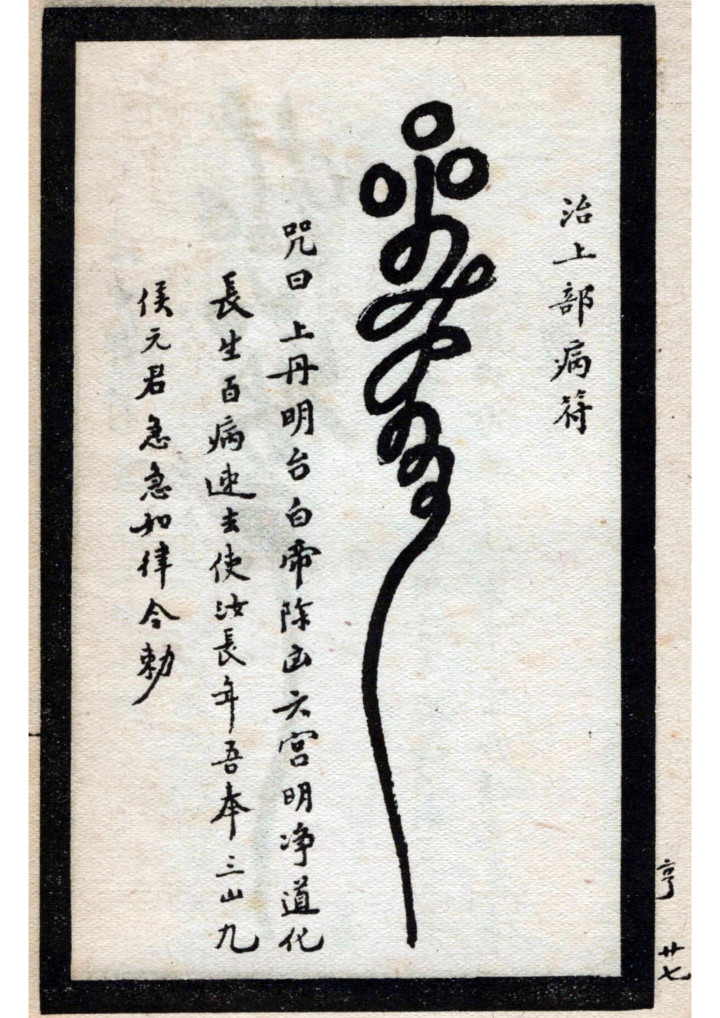 治上部病符
咒曰上丹明台白帝除凶六宫明净道化
長生百病速去使汝長年吾奉三山九
侯元君急急如律令勅
亨 廿七